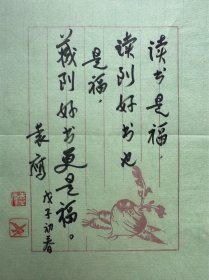 读书是福，
读到好书也
是福，
藏到好书更是福。
袁鹰
戊子初春